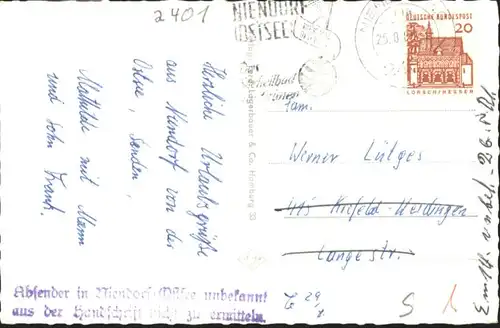 2401
NIENDORF
OSTSEE
25.8.
DEUTSCHE BUNDESPOST
20
LORSCH/HESSEN
Herzliche Urlaubsgrüße
aus Niendorf von der
Ostsee, senden,
Mathilde mit Mann
und Sohn Frank.
Lagerbauer & Co., Hamburg
Fam.
Werner Lütges
415 Krefeld-Uerdingen
Langestr.
Absender in Niendorf/Ostsee unbekannt
aus der Handschrift nicht zu ermitteln.
5 1